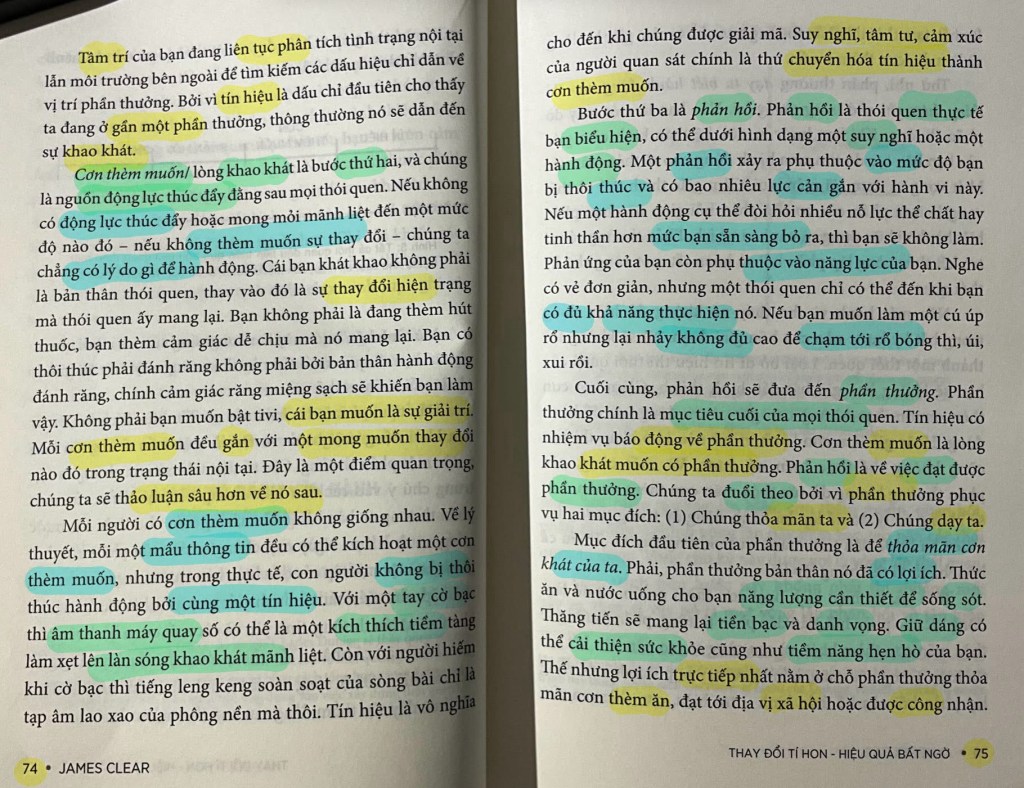 Tâm trí của bạn đang liên tục phân tích tình trạng nội tại
lẫn môi trường bên ngoài để tìm kiếm các dấu hiệu chỉ dẫn về
vị trí phần thưởng. Bởi vì tín hiệu là dấu chỉ đầu tiên cho thấy
ta đang ở gần một phần thưởng, thông thường nó sẽ dẫn đến
sự khao khát.
Cơn thèm muốn/ lòng khao khát là bước thứ hai, và chúng
là nguồn động lực thúc đẩy đằng sau mọi thói quen. Nếu không
có động lực thúc đẩy hoặc mong mỏi mãnh liệt đến một mức
độ nào đó – nếu không thèm muốn sự thay đổi – chúng ta
chẳng có lý do gì để hành động. Cái bạn khát khao không phải
là bản thân thói quen, thay vào đó là sự thay đổi hiện trạng
mà thói quen ấy mang lại. Bạn không phải là đang thèm hút
thuốc, bạn thèm cảm giác dễ chịu mà nó mang lại. Bạn có
thôi thúc phải đánh răng không phải bởi bản thân hành động
đánh răng, chính cảm giác răng miệng sạch sẽ khiến bạn làm
vậy. Không phải bạn muốn bật tivi, cái bạn muốn là sự giải trí.
Mỗi cơn thèm muốn đều gắn với một mong muốn thay đổi
nào đó trong trạng thái nội tại. Đây là một điểm quan trọng,
chúng ta sẽ thảo luận sâu hơn về nó sau.
Mỗi người có cơn thèm muốn không giống nhau. Về lý
thuyết, mỗi một mẩu thông tin đều có thể kích hoạt một cơn
thèm muốn, nhưng trong thực tế, con người không bị thôi
thúc hành động bởi cùng một tín hiệu. Với một tay cờ bạc
thì âm thanh máy quay số có thể là một kích thích tiềm tàng
làm xẹt lên làn sóng khao khát mãnh liệt. Còn với người hiếm
khi cờ bạc thì tiếng leng keng soàn soạt của sòng bài chỉ là
tạp âm lao xao của phông nền mà thôi. Tín hiệu là vô nghĩa
74 • JAMES CLEAR
cho đến khi chúng được giải mã. Suy nghĩ, tâm tư, cảm xúc
của người quan sát chính là thứ chuyển hóa tín hiệu thành
cơn thèm muốn.
Bước thứ ba là phản hồi. Phản hồi là thói quen thực tế
bạn biểu hiện, có thể dưới hình dạng một suy nghĩ hoặc một
hành động. Một phản hồi xảy ra phụ thuộc vào mức độ bạn
bị thôi thúc và có bao nhiêu lực cản gắn với hành vi này.
Nếu một hành động cụ thể đòi hỏi nhiều nỗ lực thể chất hay
tinh thần hơn mức bạn sẵn sàng bỏ ra, thì bạn sẽ không làm.
Phản ứng của bạn còn phụ thuộc vào năng lực của bạn. Nghe
có vẻ đơn giản, nhưng một thói quen chỉ có thể đến khi bạn
có đủ khả năng thực hiện nó. Nếu bạn muốn làm một cú úp
rổ nhưng lại nhảy không đủ cao để chạm tới rổ bóng thì, úi,
xui rồi.
Cuối cùng, phản hồi sẽ đưa đến phần thưởng. Phần
thưởng chính là mục tiêu cuối của mọi thói quen. Tín hiệu có
nhiệm vụ báo động về phần thưởng. Cơn thèm muốn là lòng
khao khát muốn có phần thưởng. Phản hồi là về việc đạt được
phần thưởng. Chúng ta đuổi theo bởi vì phần thưởng phục
vụ hai mục đích: (1) Chúng thỏa mãn ta và (2) Chúng dạy ta.
Mục đích đầu tiên của phần thưởng là để thỏa mãn cơn
khát của ta. Phải, phần thưởng bản thân nó đã có lợi ích. Thức
ăn và nước uống cho bạn năng lượng cần thiết để sống sót.
Thăng tiến sẽ mang lại tiền bạc và danh vọng. Giữ dáng có
thể cải thiện sức khỏe cũng như tiềm năng hẹn hò của bạn.
Thế nhưng lợi ích trực tiếp nhất nằm ở chỗ phần thưởng thỏa
mãn cơn thèm ăn, đạt tới địa vị xã hội hoặc được công nhận.
THAY ĐỔI TÍ HON - HIỆU QUẢ BẤT NGỜ • 75